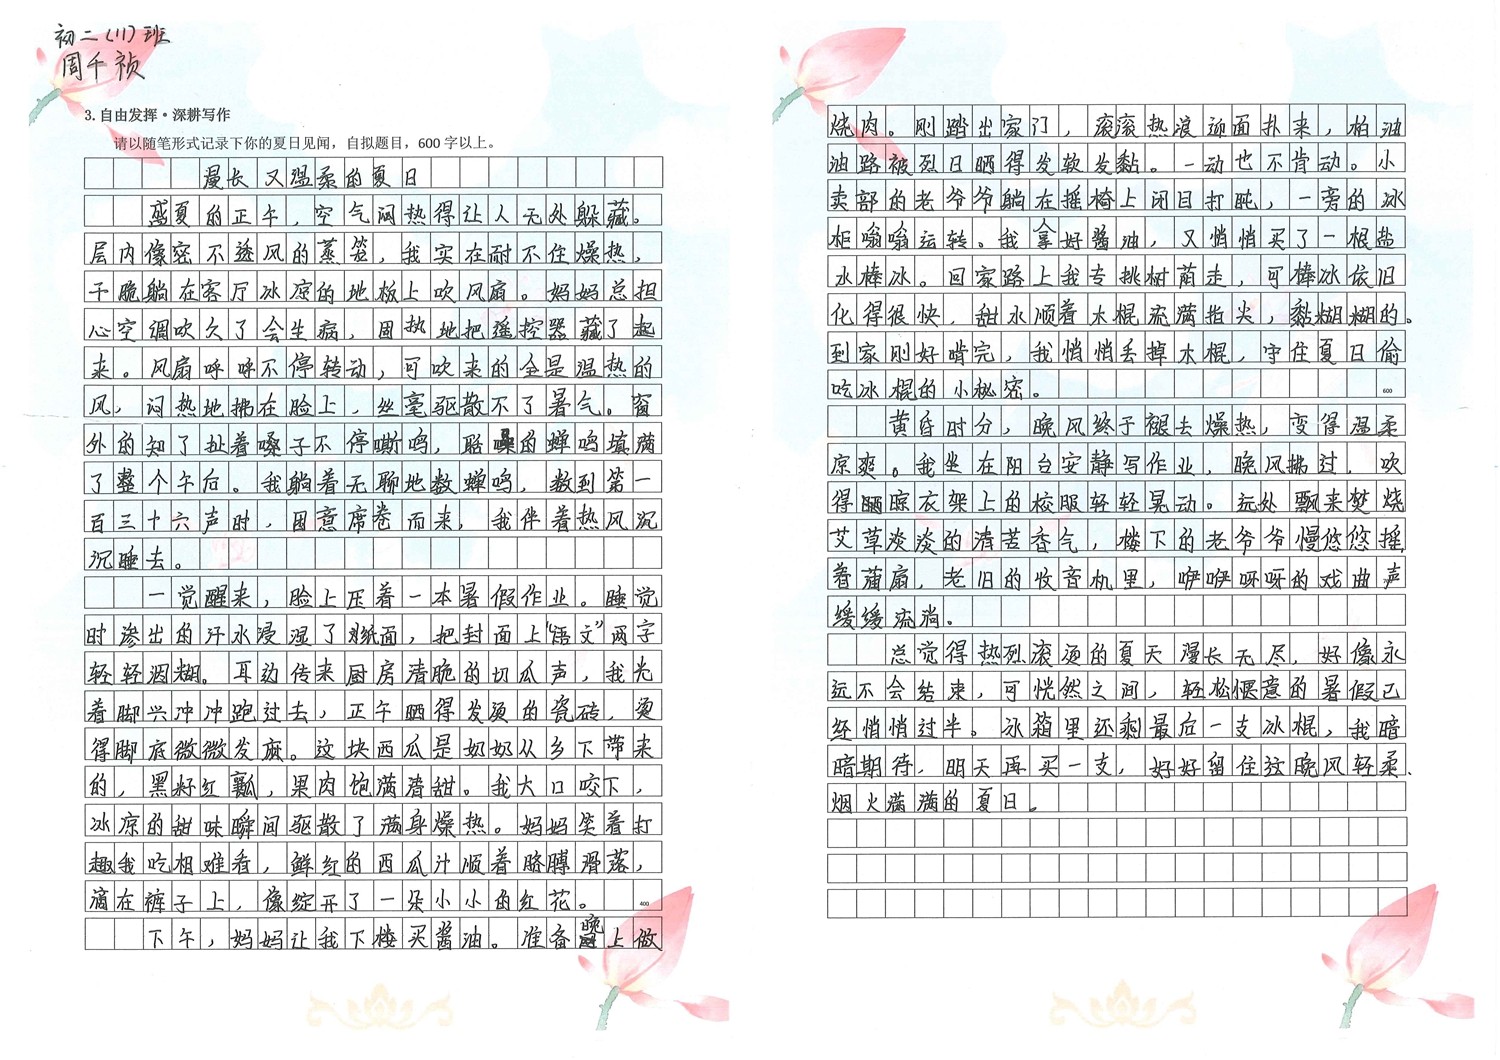 初二(11)班
周千祯
3. 自由发挥·深耕写作
请以随笔形式记录下你的夏日见闻，自拟题目，600字以上。
漫长又温柔的夏日
盛夏的正午，空气闷热得让人无处躲藏。
层内像密不透风的蒸笼，我实在耐不住燥热，
干脆躺在客厅冰凉的地板上吹风扇。妈妈总担
心空调吹久了会生病，固执地把遥控器藏了起
来。风扇呼呼不停转动，可吹来的全是温热的
风，闷热地拂在脸上，丝毫驱散不了暑气。窗
外的知了扯着嗓子不停嘶鸣，聒噪的蝉鸣填满
了整个午后。我躺着无聊地数蝉鸣，数到第一
百三十六声时，困意席卷而来，我伴着热风沉
沉睡去。
一觉醒来，脸上压着一本暑假作业。睡觉
时渗出的汗水浸湿了纸面，把封面上“语文”两字
轻轻洇糊。耳边传来厨房清脆的切瓜声，我光
着脚兴冲冲跑过去，正午晒得发烫的瓷砖，烫
得脚底微微发麻。这块西瓜是奶奶从乡下带来
的，黑籽红瓤，果肉饱满清甜。我大口咬下，
冰凉的甜味瞬间驱散了满身燥热。妈妈笑着打
趣我吃相难看，鲜红的西瓜汁顺着胳膊滑落，
滴在裤子上，像绽开了一朵小小的红花。
400
下午，妈妈让我下楼买酱油。准备晚上做
烧肉。刚踏出家门，滚滚热浪迎面扑来，柏油
油路被烈日晒得发软发黏。一动也不肯动。小
卖部的老爷爷躺在摇椅上闭目打盹，一旁的冰
柜嗡嗡运转。我拿好酱油，又悄悄买了一根盐
水棒冰。回家路上我专挑树荫走，可棒冰依旧
化得很快，甜水顺着木棍流满指尖，黏糊糊的。
到家刚好啃完，我悄悄丢掉木棍，守住夏日偷
吃冰棍的小秘密。
600
黄昏时分，晚风终于褪去燥热，变得温柔
凉爽。我坐在阳台安静写作业，晚风拂过，吹
得晾衣架上的校服轻轻晃动。远处飘来焚烧
艾草淡淡的清苦香气，楼下的老爷爷慢悠悠摇
着蒲扇，老旧的收音机里，咿咿呀呀的戏曲声
缓缓流淌。
总觉得热烈滚烫的夏天漫长无尽，好像永
远不会结束，可恍然之间，轻松惬意的暑假已
经悄悄过半。冰箱里还剩最后一支冰棍，我暗
暗期待，明天再买一支，好好留住这晚风轻柔、
烟火满满的夏日。